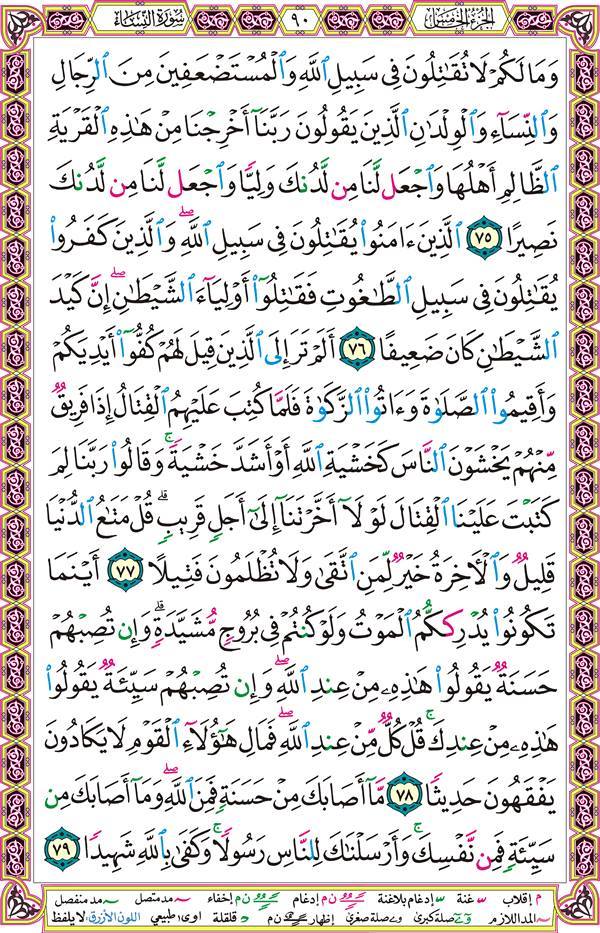 الجزء الخامس ٩٠ سورة النساء
وَمَا لَكُمۡ لَا تُقَٰتِلُونَ فِي سَبِيلِ ٱللَّهِ وَٱلۡمُسۡتَضۡعَفِينَ مِنَ ٱلرِّجَالِ
وَٱلنِّسَآءِ وَٱلۡوِلۡدَٰنِ ٱلَّذِينَ يَقُولُونَ رَبَّنَآ أَخۡرِجۡنَا مِنۡ هَٰذِهِ ٱلۡقَرۡيَةِ
ٱلظَّالِمِ أَهۡلُهَا وَٱجۡعَل لَّنَا مِن لَّدُنكَ وَلِيّٗا وَٱجۡعَل لَّنَا مِن لَّدُنكَ
نَصِيرًا ٧٥ ٱلَّذِينَ ءَامَنُواْ يُقَٰتِلُونَ فِي سَبِيلِ ٱللَّهِۖ وَٱلَّذِينَ كَفَرُواْ
يُقَٰتِلُونَ فِي سَبِيلِ ٱلطَّٰغُوتِ فَقَٰتِلُوٓاْ أَوۡلِيَآءَ ٱلشَّيۡطَٰنِۖ إِنَّ كَيۡدَ
ٱلشَّيۡطَٰنِ كَانَ ضَعِيفًا ٧٦ أَلَمۡ تَرَ إِلَى ٱلَّذِينَ قِيلَ لَهُمۡ كُفُّوٓاْ أَيۡدِيَكُمۡ
وَأَقِيمُواْ ٱلصَّلَوٰةَ وَءَاتُواْ ٱلزَّكَوٰةَ فَلَمَّا كُتِبَ عَلَيۡهِمُ ٱلۡقِتَالُ إِذَا فَرِيقٞ
مِّنۡهُمۡ يَخۡشَوۡنَ ٱلنَّاسَ كَخَشۡيَةِ ٱللَّهِ أَوۡ أَشَدَّ خَشۡيَةٗۚ وَقَالُواْ رَبَّنَا لِمَ
كَتَبۡتَ عَلَيۡنَا ٱلۡقِتَالَ لَوۡلَآ أَخَّرۡتَنَآ إِلَىٰٓ أَجَلٖ قَرِيبٖۗ قُلۡ مَتَٰعُ ٱلدُّنۡيَا
قَلِيلٞ وَٱلۡأٓخِرَةُ خَيۡرٞ لِّمَنِ ٱتَّقَىٰ وَلَا تُظۡلَمُونَ فَتِيلًا ٧٧ أَيۡنَمَا
تَكُونُواْ يُدۡرِككُّمُ ٱلۡمَوۡتُ وَلَوۡ كُنتُمۡ فِي بُرُوجٖ مُّشَيَّدَةٖۗ وَإِن تُصِبۡهُمۡ
حَسَنَةٞ يَقُولُواْ هَٰذِهِۦ مِنۡ عِندِ ٱللَّهِۖ وَإِن تُصِبۡهُمۡ سَيِّئَةٞ يَقُولُواْ
هَٰذِهِۦ مِنۡ عِندِكَۚ قُلۡ كُلّٞ مِّنۡ عِندِ ٱللَّهِۖ فَمَالِ هَٰٓؤُلَآءِ ٱلۡقَوۡمِ لَا يَكَادُونَ
يَفۡقَهُونَ حَدِيثٗا ٧٨ مَّآ أَصَابَكَ مِنۡ حَسَنَةٖ فَمِنَ ٱللَّهِۖ وَمَآ أَصَابَكَ مِن
سَيِّئَةٖ فَمِن نَّفۡسِكَۚ وَأَرۡسَلۡنَٰكَ لِلنَّاسِ رَسُولٗاۚ وَكَفَىٰ بِٱللَّهِ شَهِيدٗا ٧٩
م إقلاب غنة إدغام بلاغنة ن م إدغام ن م إخفاء مد متصل مد منفصل
المد اللازم صلة كبرى صلة صغرى إظهار ن م قلقلة اوى طبيعي اللون الأزرق لا يلفظ